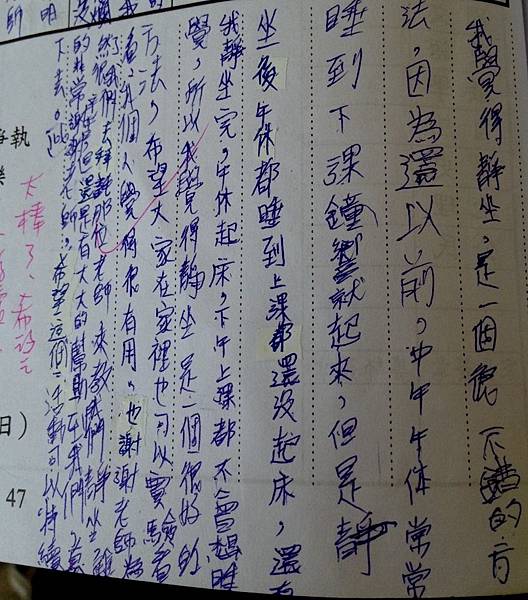 我覺得靜坐，是一個很不錯的方
法，因為還以前，中午午休常常
睡到下課鐘響就起來，但是靜
坐後午休都睡到上課都還沒起床，還有
我靜坐完，午休起床，下午上課都不會想睡
覺，所以我覺得靜坐是一個很好的
方法，希望大家在家裡也可以實驗看
看，我個人覺得很有用。也謝謝老師為
了我們去拜託那位老師來教我們靜坐雖
然很辛苦但還是有大大的幫助到我們，真
的非常謝謝老師。希望這個活動可以持續
下去。
太棒了、希望
執
日）
47